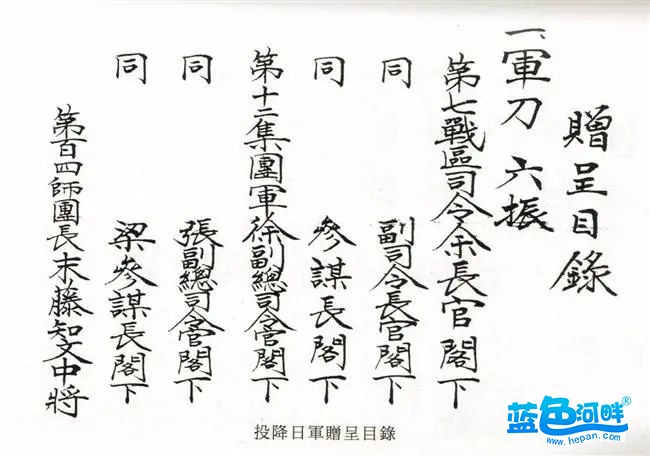 贈呈目錄
一、軍刀 六振
第七戰區司令余長官閣下
同 副司令長官閣下
同 參謀長閣下
第十二集團軍徐副總司令官閣下
同 張副總司令官閣下
同 梁參謀長閣下
第百四師團長末藤知文中將
投降日軍贈呈目錄
蓝色河畔®
www.hepan.com